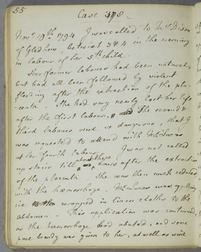 55
Case 378.
Novr 19th 1794 I was called to Mrs Dixon
of Glasgow, betwixt 3 & 4 in the morning
in labour of her 5th child.
Her former labours had been natural,
but had all been followed by violent
flooding after the extraction of the pla-
centa. She had very nearly lost her life
after the first labour, & the second &
third labours were so dangerous, that I
was requested to attend with
at her fourth labour. I was not called
up stairs till
hours after the extraction
of the placenta. She was then much reduced
with the hæmorrhage.
wrapped in linen cloths to the
abdomen. This application was continued,
as the hæmorrhage had abated, and some
were given to her, as well as wine